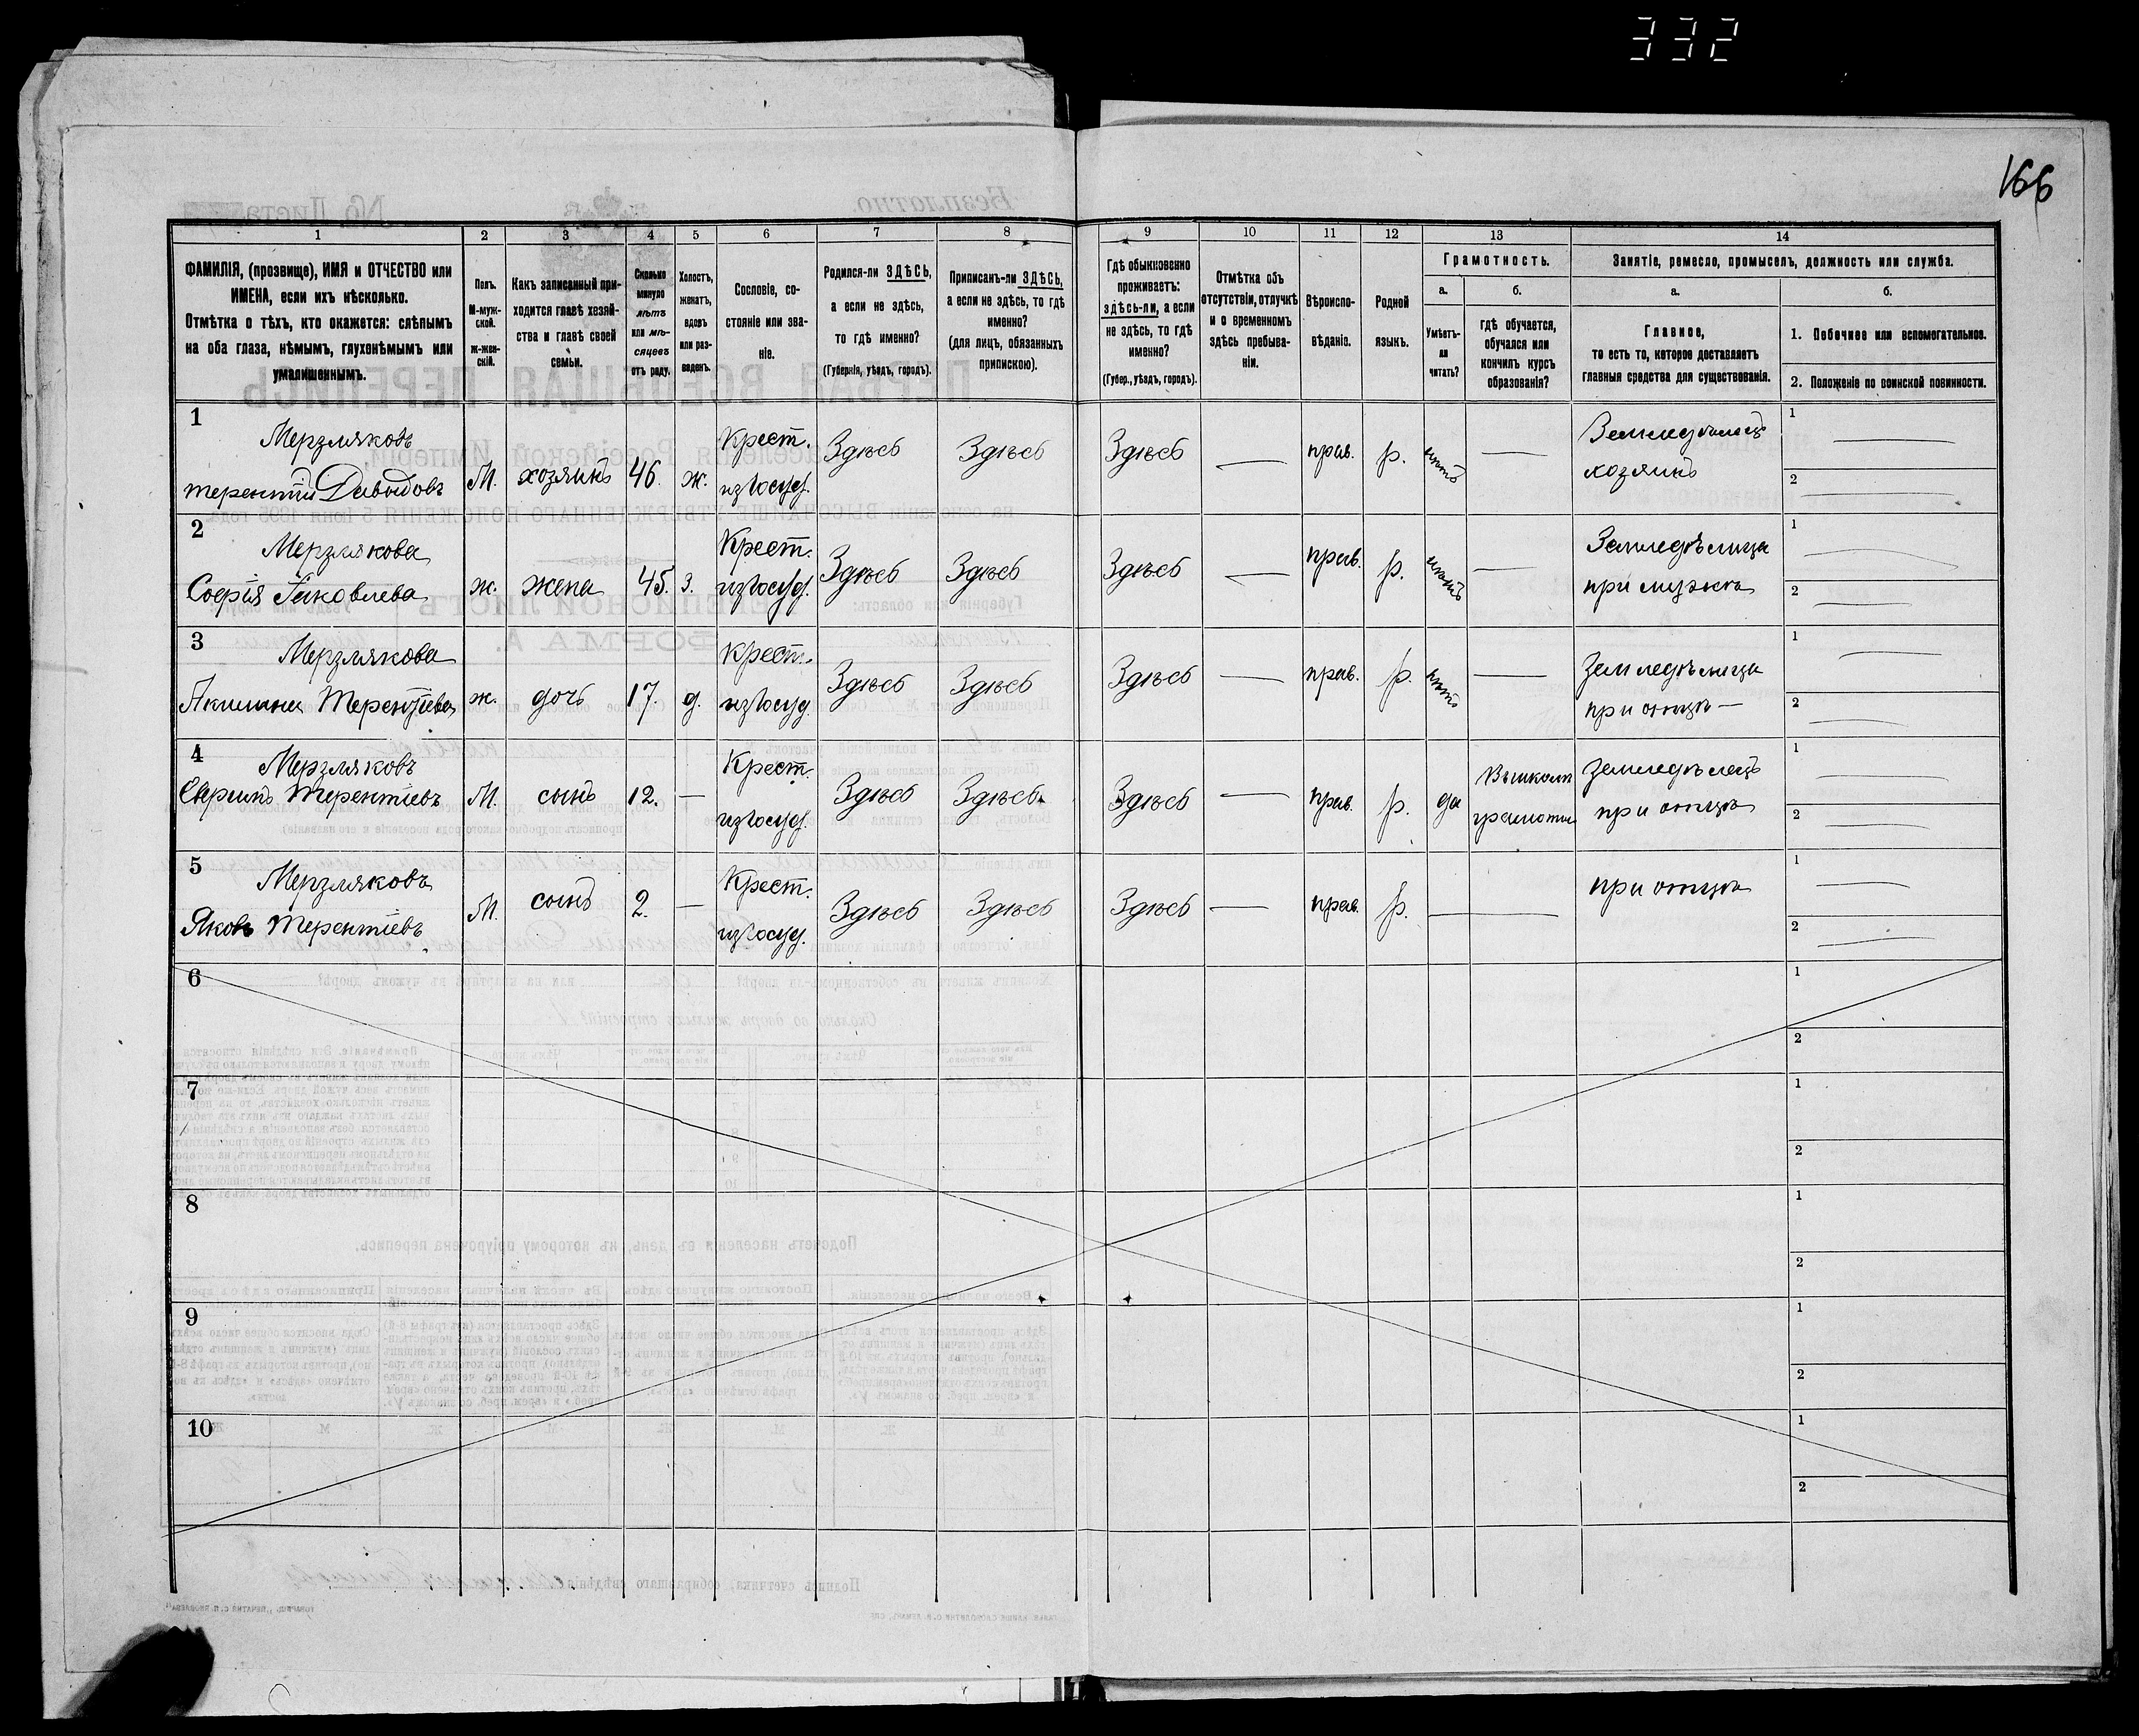 332
166
1 2 3 4 5 6 7 8 9 10 11 12 13 14
ФАМИЛІЯ, (прозвище), ИМЯ и ОТЧЕСТВО или
ИМЕНА, если ихъ нѣсколько.
Отмѣтка о тѣхъ, кто окажется: слѣпымъ
на оба глаза, нѣмымъ, глухонѣмымъ или
умалишеннымъ.
Полъ.
М-муж-
ской.
ж-жен-
скій.
Какъ записанный при-
ходится главѣ хозяй-
ства и главѣ своей
семьи.
Сколько
минуло
лѣтъ
или мѣ-
сяцевъ
отъ роду.
Холостъ,
женатъ,
вдовъ
или раз-
веденъ.
Сословіе, со-
стояніе или зва-
ніе.
Родился-ли ЗДѢСЬ,
а если не здѣсь,
то гдѣ именно?
(Губернія, уѣздъ, городъ).
Приписанъ-ли ЗДѢСЬ,
а если не здѣсь, то гдѣ
именно?
(для лицъ, обязанныхъ
припискою).
Гдѣ обыкновенно
проживаетъ:
здѣсь-ли, а если
не здѣсь, то гдѣ
именно?
(Губер., уѣздъ, городъ).
Отмѣтка объ
отсутствіи, отлучкѣ
и о временномъ
здѣсь пребыва-
ніи.
Вѣроиспо-
вѣданіе.
Родной
языкъ.
Грамотность.
а.
Умѣетъ-
ли
читать?
б.
гдѣ обучается,
обучался или
кончилъ курсъ
образованія?
Занятіе, ремесло, промыселъ, должность или служба.
а.
Главное,
то есть то, которое доставляетъ
главныя средства для существованія.
б.
1. Побочное или вспомогательное.
2. Положеніе по воинской повинности.
1
Мерзляковъ
Терентій Давыдовъ
М. хозяинъ 46. ж.
Крест.
из Госуд.
Здѣсь Здѣсь Здѣсь — прав. р. нѣтъ —
Земледѣлецъ
хозяинъ
1 —
2 —
2
Мерзлякова
Софія Яковлева
ж. жена 45. з.
Крест.
из Госуд.
Здѣсь Здѣсь Здѣсь — прав. р. нѣтъ —
Земледѣлица
при мужѣ
1 —
2 —
3
Мерзлякова
Терентіева
ж. дочь 17. д.
крест.
из Госуд.
Здѣсь Здѣсь Здѣсь — прав. р. нѣтъ —
Земледѣлица
при отцѣ —
1 —
2 —
4
Мерзляковъ
Терентіевъ
М. сынъ 12. —
Крест.
из Госуд.
Здѣсь Здѣсь Здѣсь — прав. р. да
В школѣ
грамотн
Земледѣлецъ
при отцѣ
1 —
2 —
5
Мерзляковъ
Яковъ Терентіевъ
М. сынъ 2. —
Крест.
из Госуд.
Здѣсь Здѣсь Здѣсь — прав. р. — —
при отцѣ
1 —
2 —
6
1
2
7
1
2
8
1
2
9
1
2
10
1
2